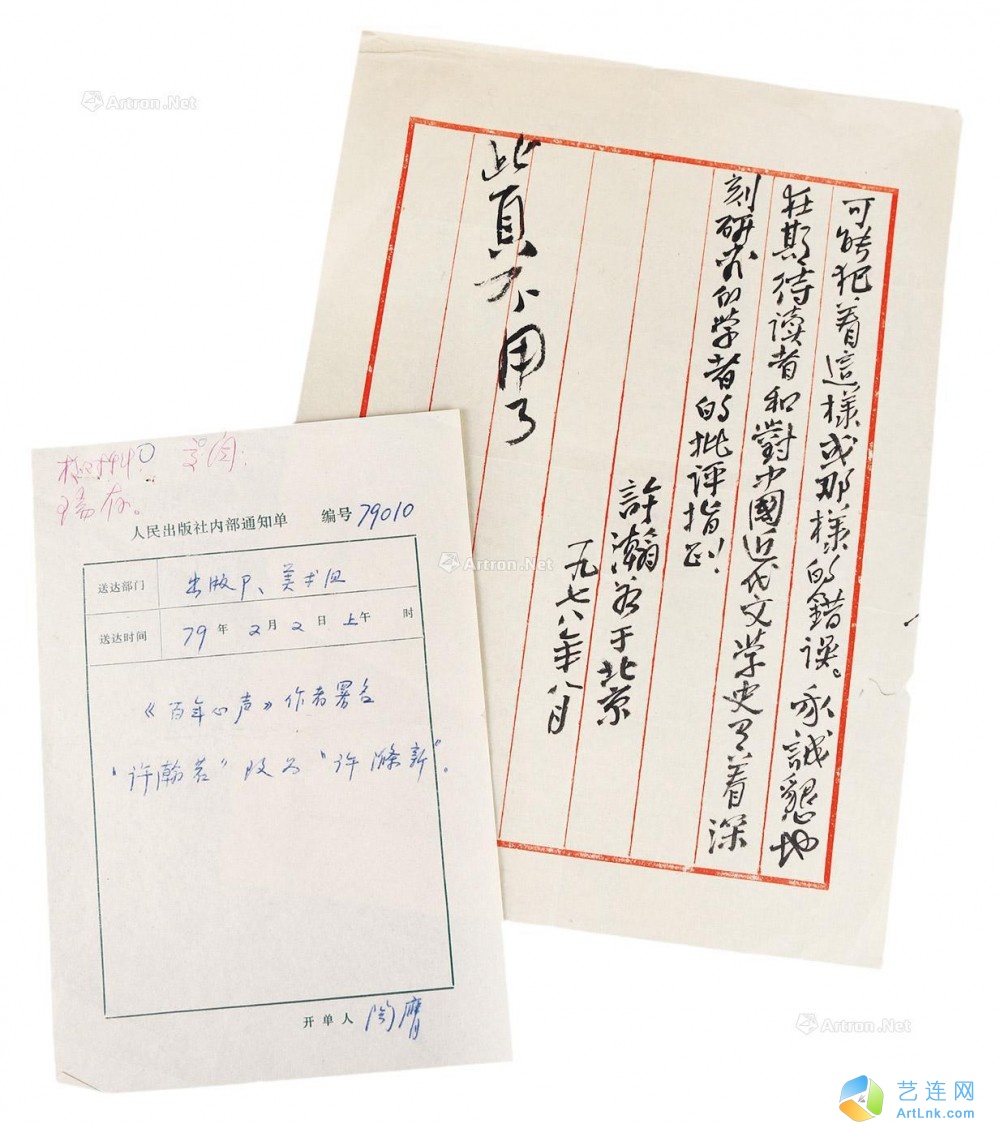 可能犯着這樣或那樣的錯誤。我誠懇地
在期待读者和對中國近代文学史具着深
刻研究的学者的批评指正！
許瀚若于北京
一九七八年八月
此頁不用了
人民出版社内部通知单 编号 79010
送达部门 出版P、美术组
送达时间 79年2月2日上午 时
《百年心声》作者署名
“许瀚若”改为“许滌新”。
开单人 陶膺
Artron.Net
Artron.Net
Artron.Net
艺连网
ArtLnk.com